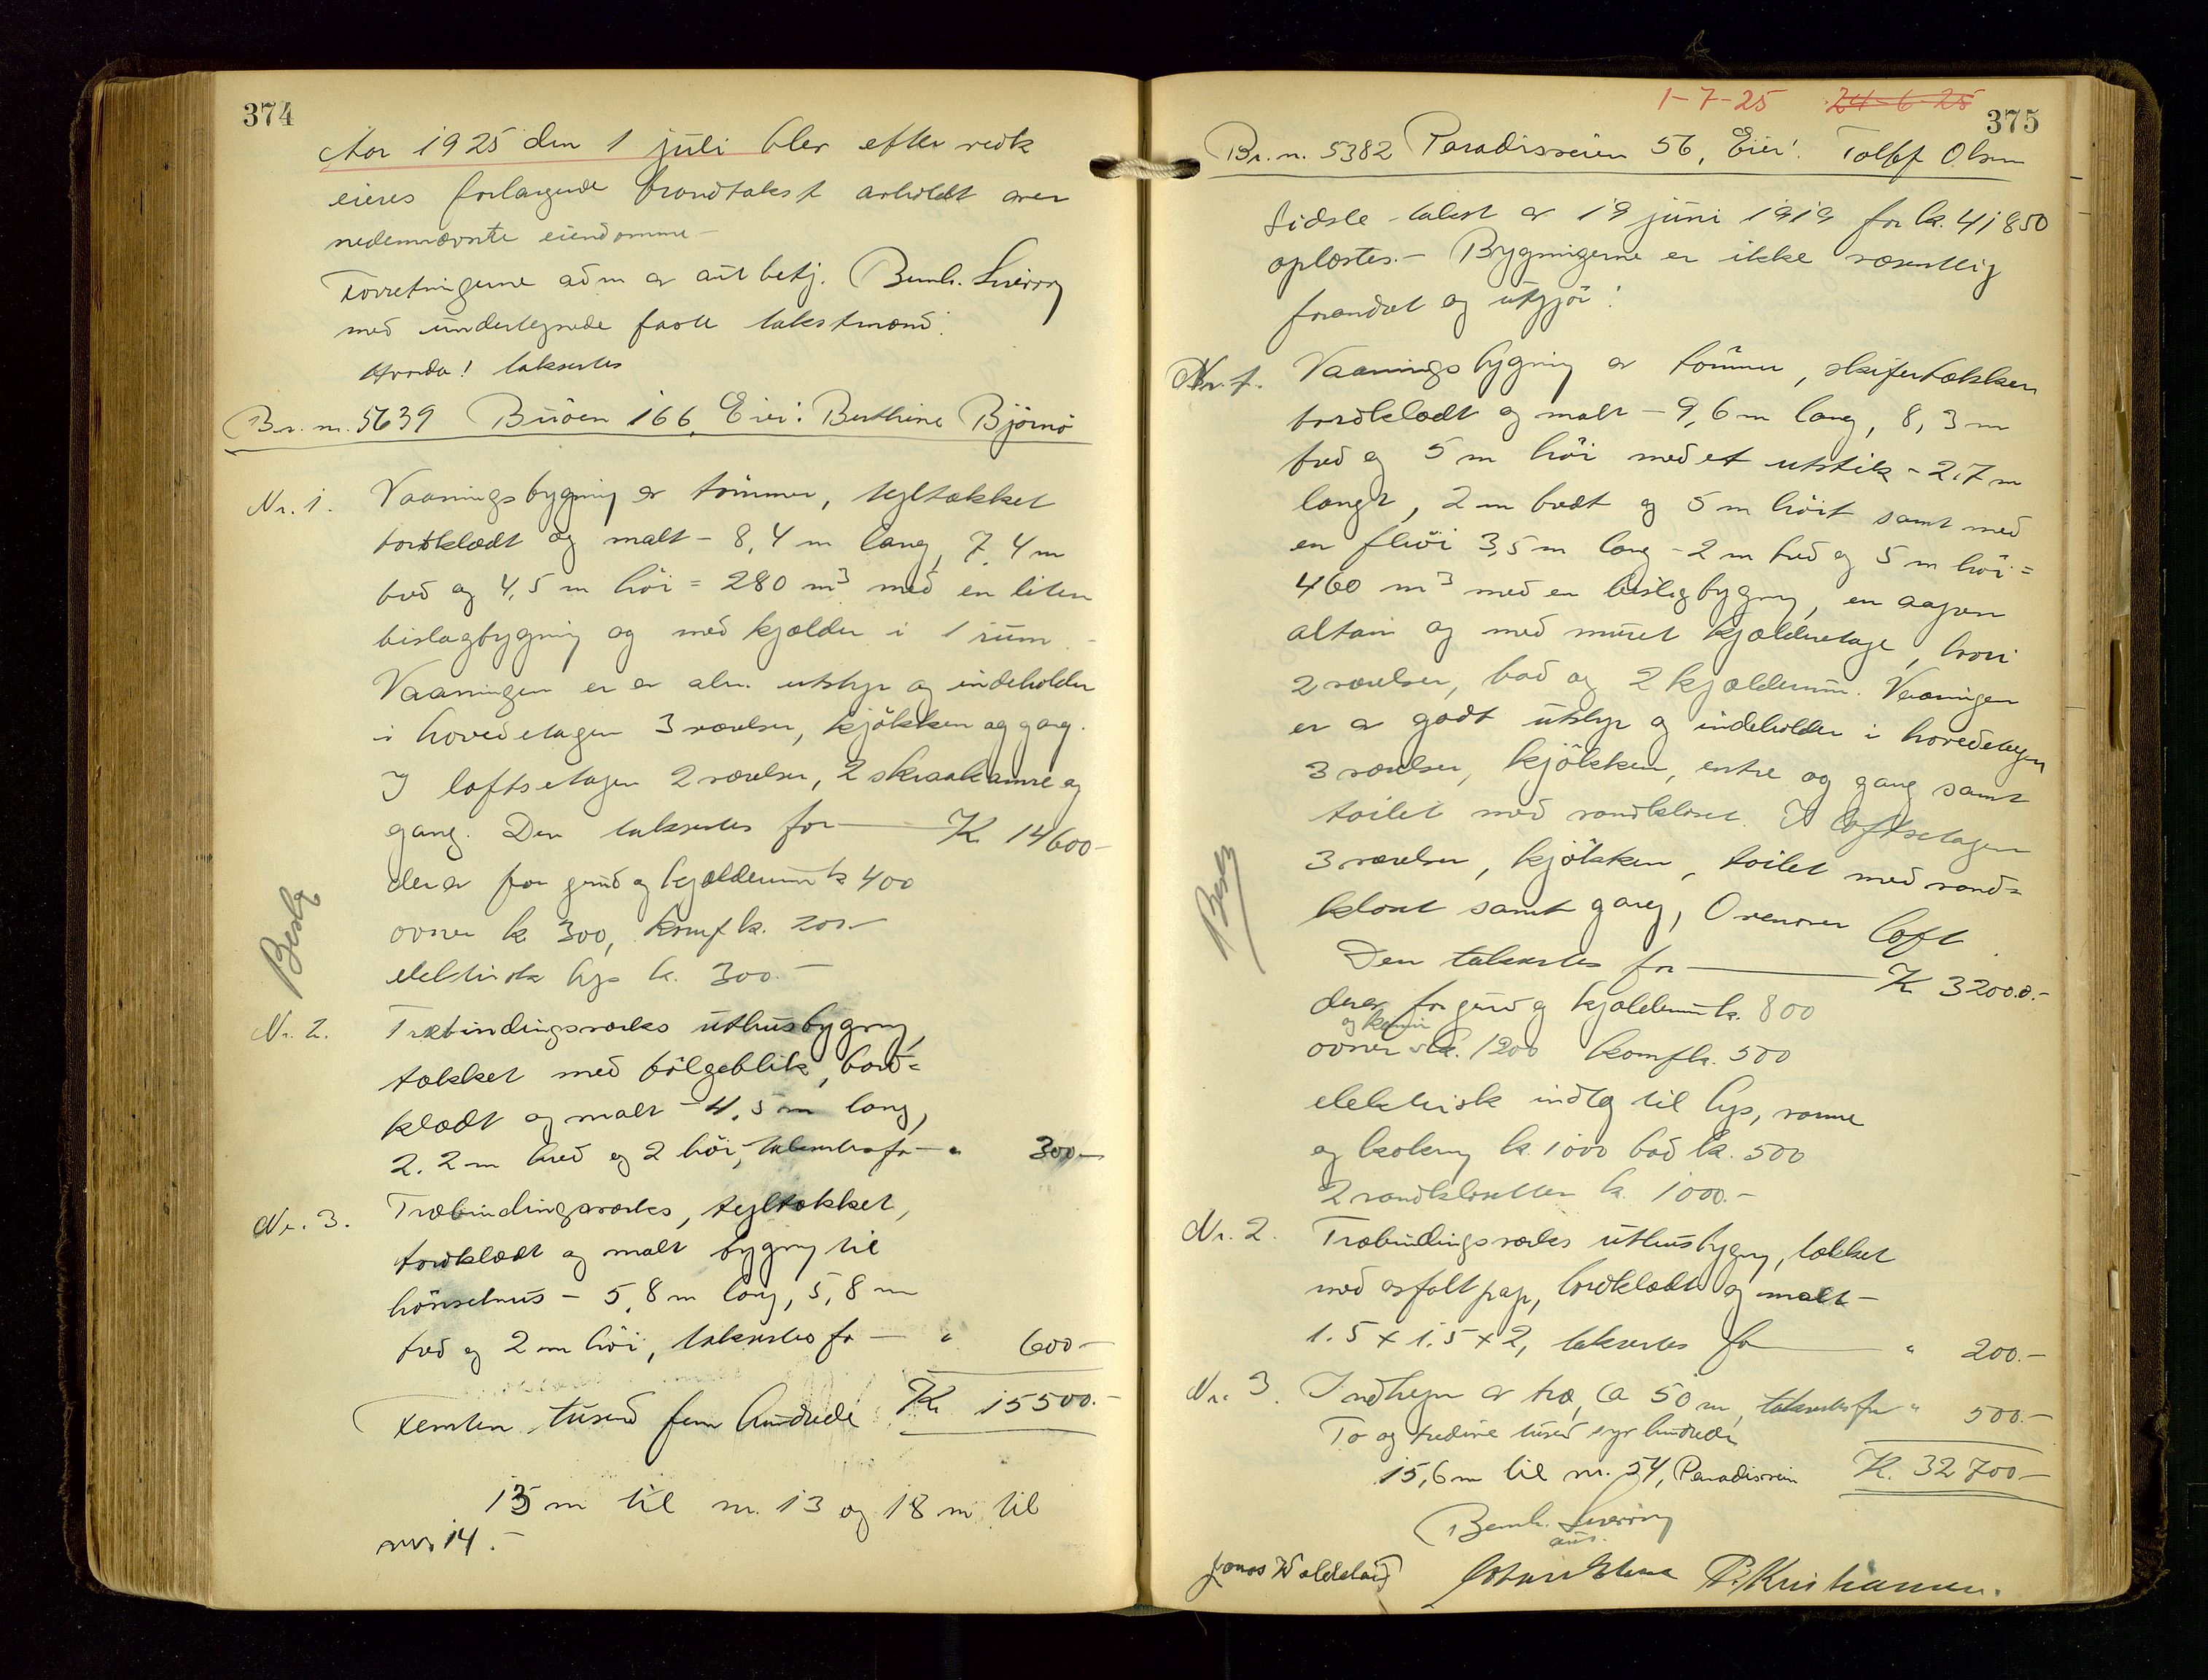 374
Aar 1925 den 1 juli blev efter vedk
eieres forlangende brandtakst avholdt over
nedennævnte eiendomme -
Forretningerne adm av aut betj. Bernh. Sverring
med undertegnede faste takstmænd.
Hvorda! taksertes
Br. nr. 5639 Buøen 166, Eier: Berthine Bjørnø
Nr. 1. Vaaningsbygning av tømmer, tegltækket
bordklædt og malt - 8,4 m lang, 7,4 m
bred og 4,5 m høi = 280 m³ med en liten
bislagbygning og med kjelder i 1 rum -
Vaaningen er av alm. utstyr og indeholder
i hovedetagen 3 værelser, kjøkken og gang.
I loftsetagen 2 værelser, 2 skraakamre og
gang. Den taksertes for — K. 14600-
derav for grund og kjælderrum k 400
ovner k 300, komf k. 200-
elektrisk lys k. 300.-
Besl
Nr. 2. Træbindingsværks uthusbygning,
tækket med bølgeblik, bord=
klædt og malt - 4,5 m lang,
2.2 m bred og 2 høi, taksertes for - " 300-
Nr. 3. Træbindingsværks, tegltækket,
bordklædt og malt bygning til
hønsehus - 5,8 m lang, 5,8 m
bred og 2 m høi, taksertes for - " 600-
Femten tusend fem hundrede K. 15500.-
15 m til nr. 13 og 18 m til
nr. 14.-
1-7-25 24-6-25
375
Br. n. 5382 Paradisveien 56, Eier: Tollef Olsen
Sidste takst av 19 juni 1919 for k. 41850
oplæstes.- Bygningerne er ikke væsentlig
forandret og utgjør:
Nr. 1. Vaaningsbygning av tømmer, skifertækket
bordklædt og malt - 9,6 m lang, 8,3 m
bred og 5 m høi med et utstik - 2,7 m
langt, 2 m bredt og 5 m høit samt med
en fløi 3,5 m lang - 2 m bred og 5 m høi =
460 m³ med en bislagbygning, en aapen
altan og med muret kjælderetage, hvori
2 værelser, bad og 2 kjælderrum. Vaaningen
er av godt utstyr og indeholder i hovedetagen
3 værelser, kjøkken, entre og gang samt
toilet med vandkloset. I loftsetagen
3 værelser, kjøkken, toilet med vand=
kloset samt gang, Ovenover loft
Den taksertes for — K 32000.-
derav for grund og kjælderrum k. 800
og kamin
ovner k. 1200 komf k. 500
elektrisk indlg til lys, varme
og kokning k. 1000 bad k. 500
2 vandklosetter k. 1000.-
Besl
Nr. 2. Træbindingsværks uthusbygning, tækket
med asfaltpap, bordklædt og malt -
1.5 x 1.5 x 2, taksertes for — " 200.-
Nr. 3. Indhegn av træ, ca 50 m, taksertes for " 500.-
To og tredive tusend syv hundrede
15,6 m til nr. 54, Paradisvein K. 32700-
Bernh. Sverring
aut.
Jonas Waldeland P. Kristiansen.